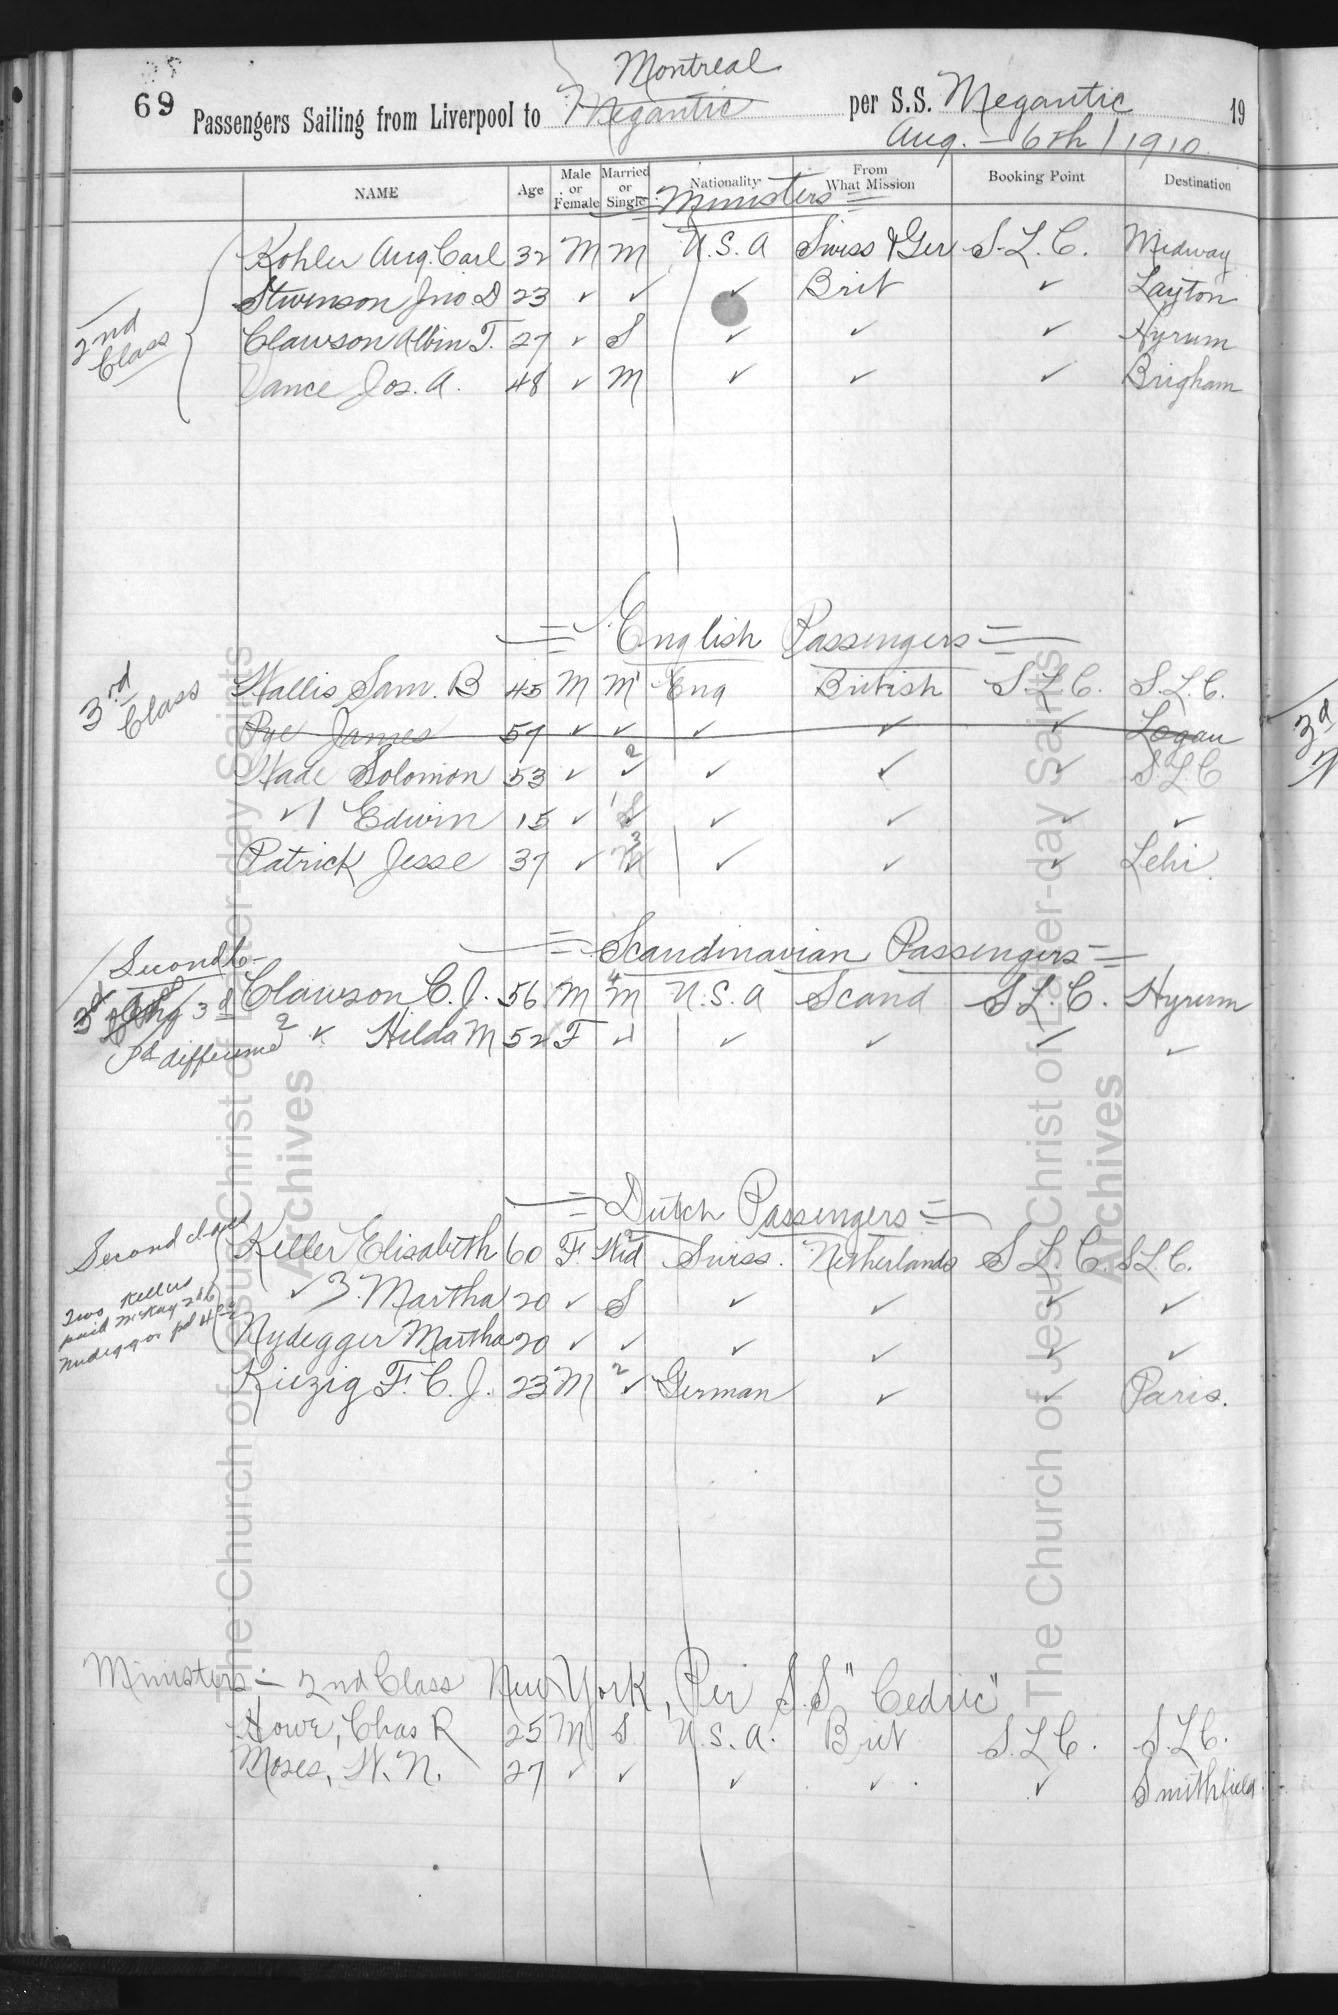 Montreal
69 Passengers Sailing from Liverpool to Megantic per S.S. Megantic 19
Aug. - 6th / 1910
NAME Age Male or Female Married or Single Nationality From What Mission Booking Point Destination
= Ministers =
2nd Class
Kohler Aug. Carl 32 M M U.S.A Swiss & Ger S.L.C. Midway
Stevenson Jno D 23 ✓ ✓ ✓ Brit ✓ Layton
Clawson Albin T. 27 ✓ S ✓ ✓ ✓ Hyrum
Vance Jos. A. 48 ✓ M ✓ ✓ ✓ Brigham
= English Passengers =
3rd Class
Wallis Sam. B 45 M M 1 Eng British S.L.C. S.L.C.
Pye James 57 ✓ ✓ ✓ ✓ ✓ Logan
Wade Solomon 53 ✓ ✓ 2 ✓ ✓ ✓ S.L.C
✓ 1 Edwin 15 ✓ 1 S ✓ ✓ ✓ ✓
Patrick Jesse 37 ✓ 3 M ✓ ✓ ✓ Lehi.
= Scandinavian Passengers =
Second C-
3d
Clawson C. J. 56 M 4 M U.S.A Scand S.L.C. Hyrum
Pd difference 2 ✓ Hilda M 52 F ✓ ✓ ✓ ✓ ✓
= Dutch Passengers =
Second class
Keller Elisabeth 60 F. 2 Wid Swiss. Netherlands S.L.C. S.L.C.
✓ 3. Martha 20 ✓ S ✓ ✓ ✓ ✓
Two Kellers
paid McKay
Nudegger pd
Nydegger Martha 20 ✓ ✓ ✓ ✓ ✓ ✓
Kiezig F. C. J. 23 M 2 ✓ German ✓ ✓ Paris.
Ministers - 2nd Class New York, Per S.S "Cedric"
Howe, Chas R 25 M S U.S.A. Brit S.L.C. S.L.C.
Moses, W. N. 27 ✓ ✓ ✓ ✓ ✓ Smithfield.
3d
The Church of Jesus Christ of Latter-day Saints
Archives
The Church of Jesus Christ of Latter-day Saints
Archives